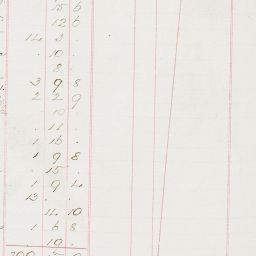 15 6
12 6
14 3 .
. 10 .
. 8 .
3 9 8
2 2 9
. 10 .
. 11 .
1 16 .
1 9 8
. 15 .
1 9 4
13 . .
14 10
1 6 8
. 19 .